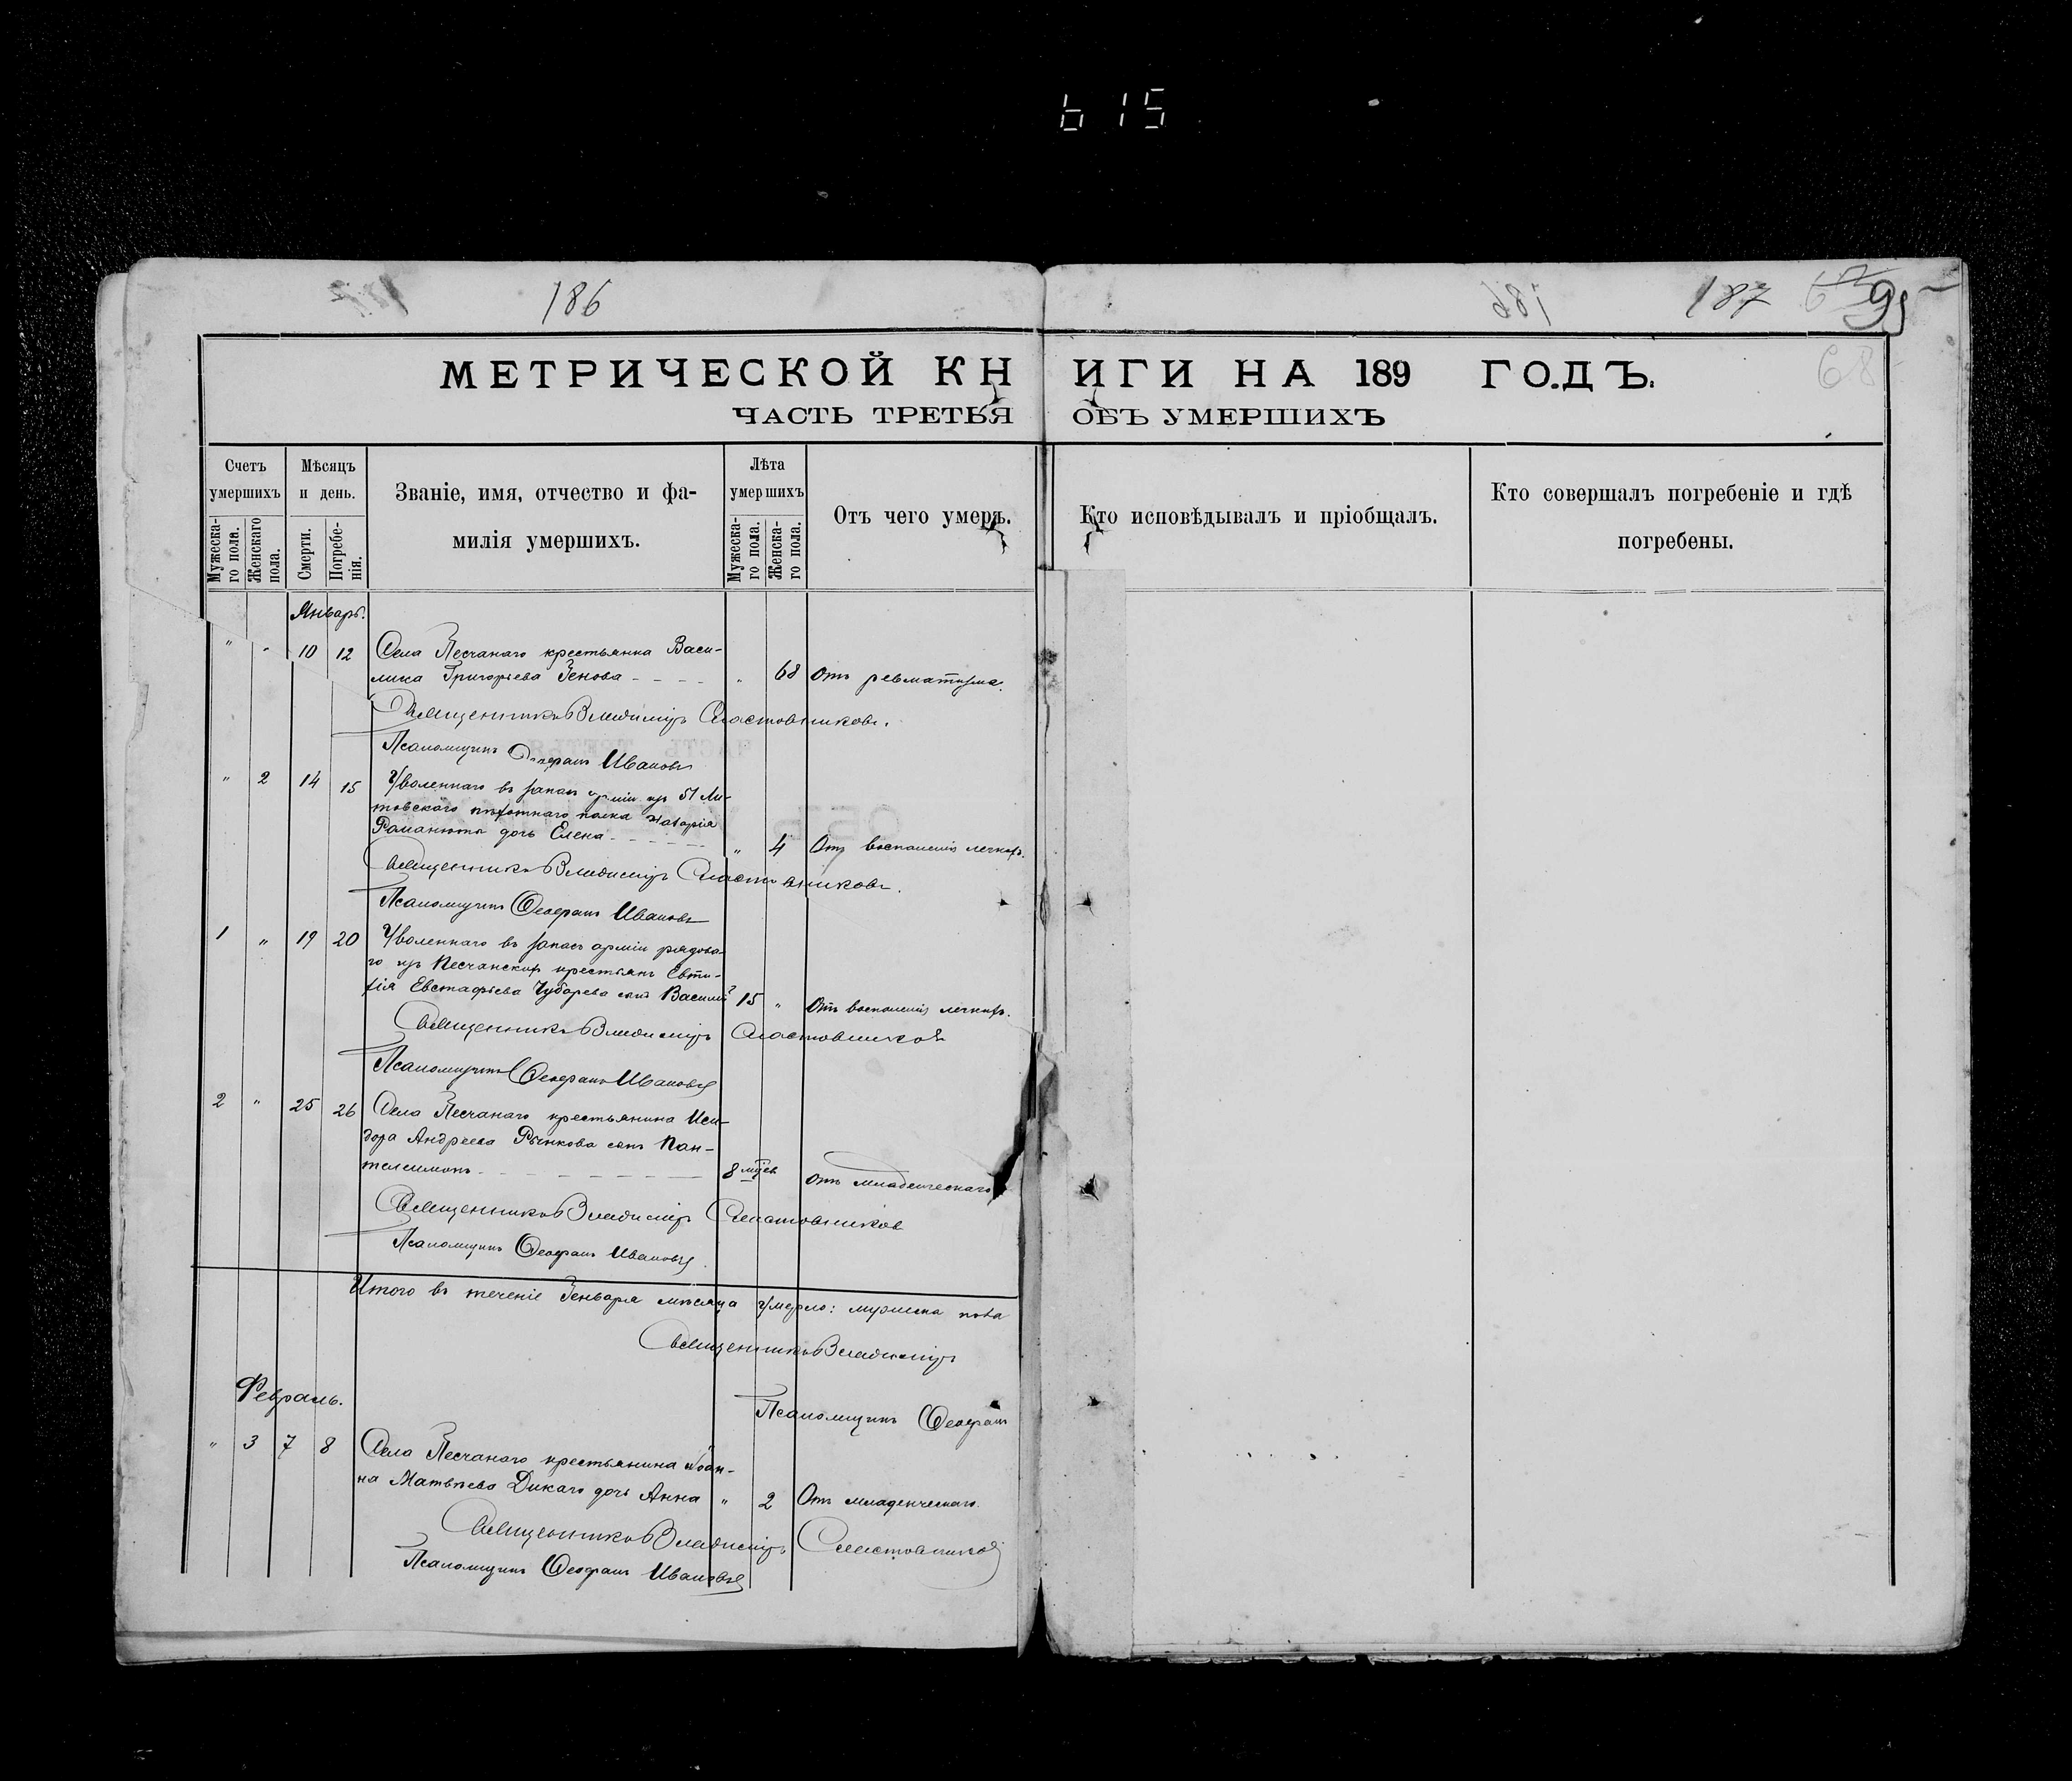 615
186
187
95
68
МЕТРИЧЕСКОЙ КНИГИ НА 189 ГОДЪ.
ЧАСТЬ ТРЕТЬЯ ОБЪ УМЕРШИХЪ
Счетъ умершихъ
Мужеска-го пола.
Женскаго пола.
Мѣсяцъ и день.
Смерти.
Погребе-нія.
Званіе, имя, отчество и фа-
милія умершихъ.
Лѣта умершихъ
Мужеска-го пола.
Женска-го пола.
Отъ чего умеръ.
Кто исповѣдывалъ и пріобщалъ.
Кто совершалъ погребеніе и гдѣ
погребены.
Январь.
" " 10 12 Села Песчанаго крестьянка Васи-
лика Григорьева Зенова " 68 Отъ ревматизма.
Священникъ Владиміръ Сластовниковъ.
Псаломщикъ Феофанъ Ивановъ
" 2 14 15 Уволеннаго въ запасъ арміи изъ 51 Ли-
товскаго пѣхотнаго полка
Романюты дочь Елена " 4 Отъ воспаленія легкихъ.
Священникъ Владиміръ Сластовниковъ.
Псаломщикъ Феофанъ Ивановъ
1 " 19 20 Уволеннаго въ запасъ арміи рядова-
го изъ Песчанскихъ крестьянъ Евти-
хія Евстафьева Чубарева сынъ Василій 15 " Отъ воспаленія легкихъ.
Священникъ Владиміръ Сластовниковъ
Псаломщикъ Феофанъ Ивановъ
2 " 25 26 Села Песчанаго крестьянина Иси-
дора Андреева Рынкова сынъ Пан-
телеимонъ 8 мцевъ Отъ младенческаго
Священникъ Владиміръ Сластовниковъ
Псаломщикъ Феофанъ Ивановъ
Итого въ теченіе Генваря мѣсяца умерло: мужеска пола
Священникъ Владиміръ
Псаломщикъ Феофанъ
Февраль.
" 3 7 8 Села Песчанаго крестьянина Іоан-
на Матвѣева Дикаго дочь Анна " 2 Отъ младенческаго.
Священникъ Владиміръ Сластовниковъ
Псаломщикъ Феофанъ Ивановъ